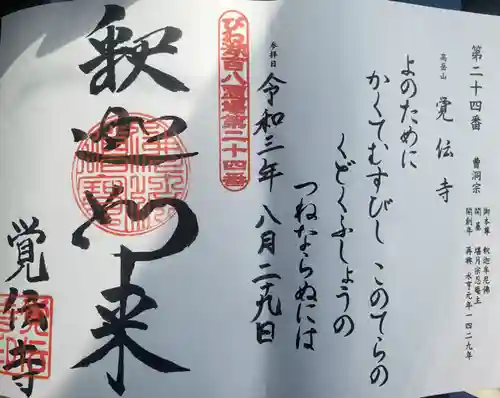 第二十四番 曹洞宗
御本尊 釈迦牟尼佛
開創年 再興 永享元年 一四二九年
高岳山 覚伝寺
よのために
かくてむすびし このてらの
くどくふしょうの
つねならぬには
参拝日 令和三年 八月二十九日
びわ湖百八霊場第二十四番
釈迦如来
覚伝寺